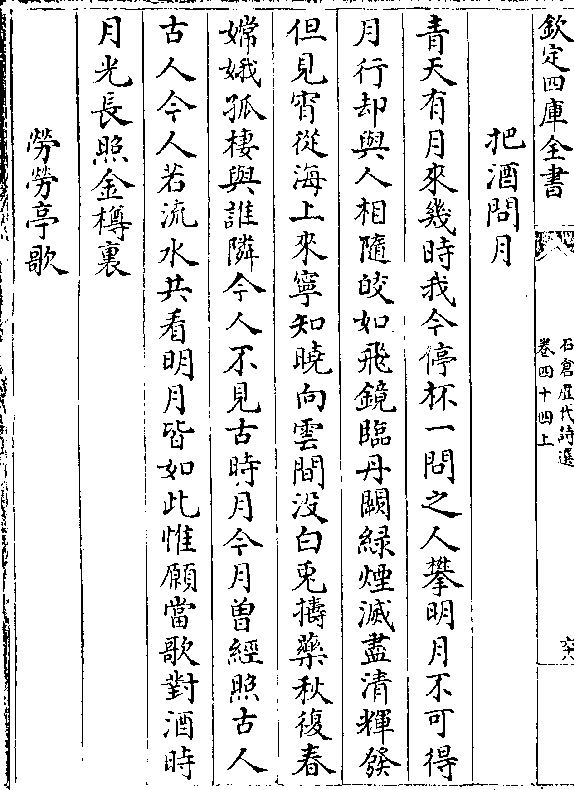 欽定四庫全書
石倉歷代詩選
卷四十四上
六
把酒問月
青天有月來幾時我今停杯一問之人攀明月不可得
月行却與人相隨皎如飛鏡臨丹闕緑煙滅盡清輝發
但見宵從海上來寧知曉向雲間没白兎擣藥秋復春
嫦娥孤棲與誰隣今人不見古時月今月曽經照古人
古人今人若流水共看明月皆如此惟願當歌對酒時
月光長照金樽裏
勞勞亭歌